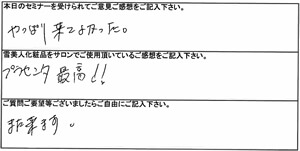 本日のセミナーを受けられてご意見ご感想をご記入下さい。
やっぱり来てよかった。
雪美人化粧品をサロンでご使用頂いているご感想をご記入下さい。
プラセンタ最高!!
ご質問ご要望等ございましたらご自由にご記入下さい。
また来ます。